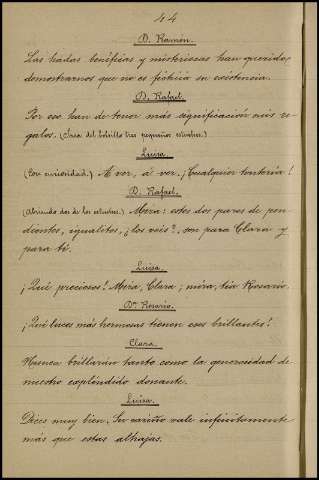 44
D. Ramón.
Las hadas benéficas y misteriosas han querido
demostrarnos que no es ficticia su existencia.
D. Rafael.
Por eso han de tener más significación mis re-
galos. (Saca del bolsillo tres pequeños estuches.)
Luisa.
(Con curiosidad.) A ver, á ver. ¡Cualquier tontería!
D. Rafael.
(Abriendo dos de los estuches.) Mira: estos dos pares de pen-
dientes, igualitos, ¿los véis?, son para Clara y
para tí.
Luisa.
¡Qué preciosos! Mira, Clara; mira, tía Rosario.
Dª. Rosario.
¡Qué luces más hermosas tienen esos brillantes!
Clara.
Nunca brillarán tanto como la generosidad de
nuestro espléndido donante.
Luisa.
Dices muy bien. Su cariño vale infinitamente
más que estas alhajas.